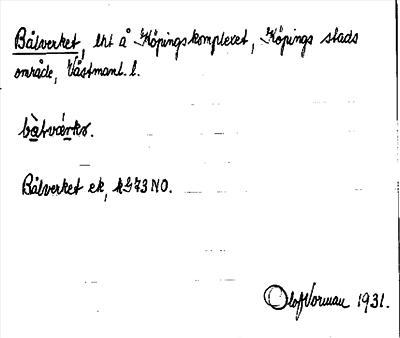 Bålverket, lht å Köpingskomplexet, Köpings stads
område, Västmanl. l.
bå̀tvä́rkə.
Bålverket ek, kG73NO.
Olof Norman 1931.